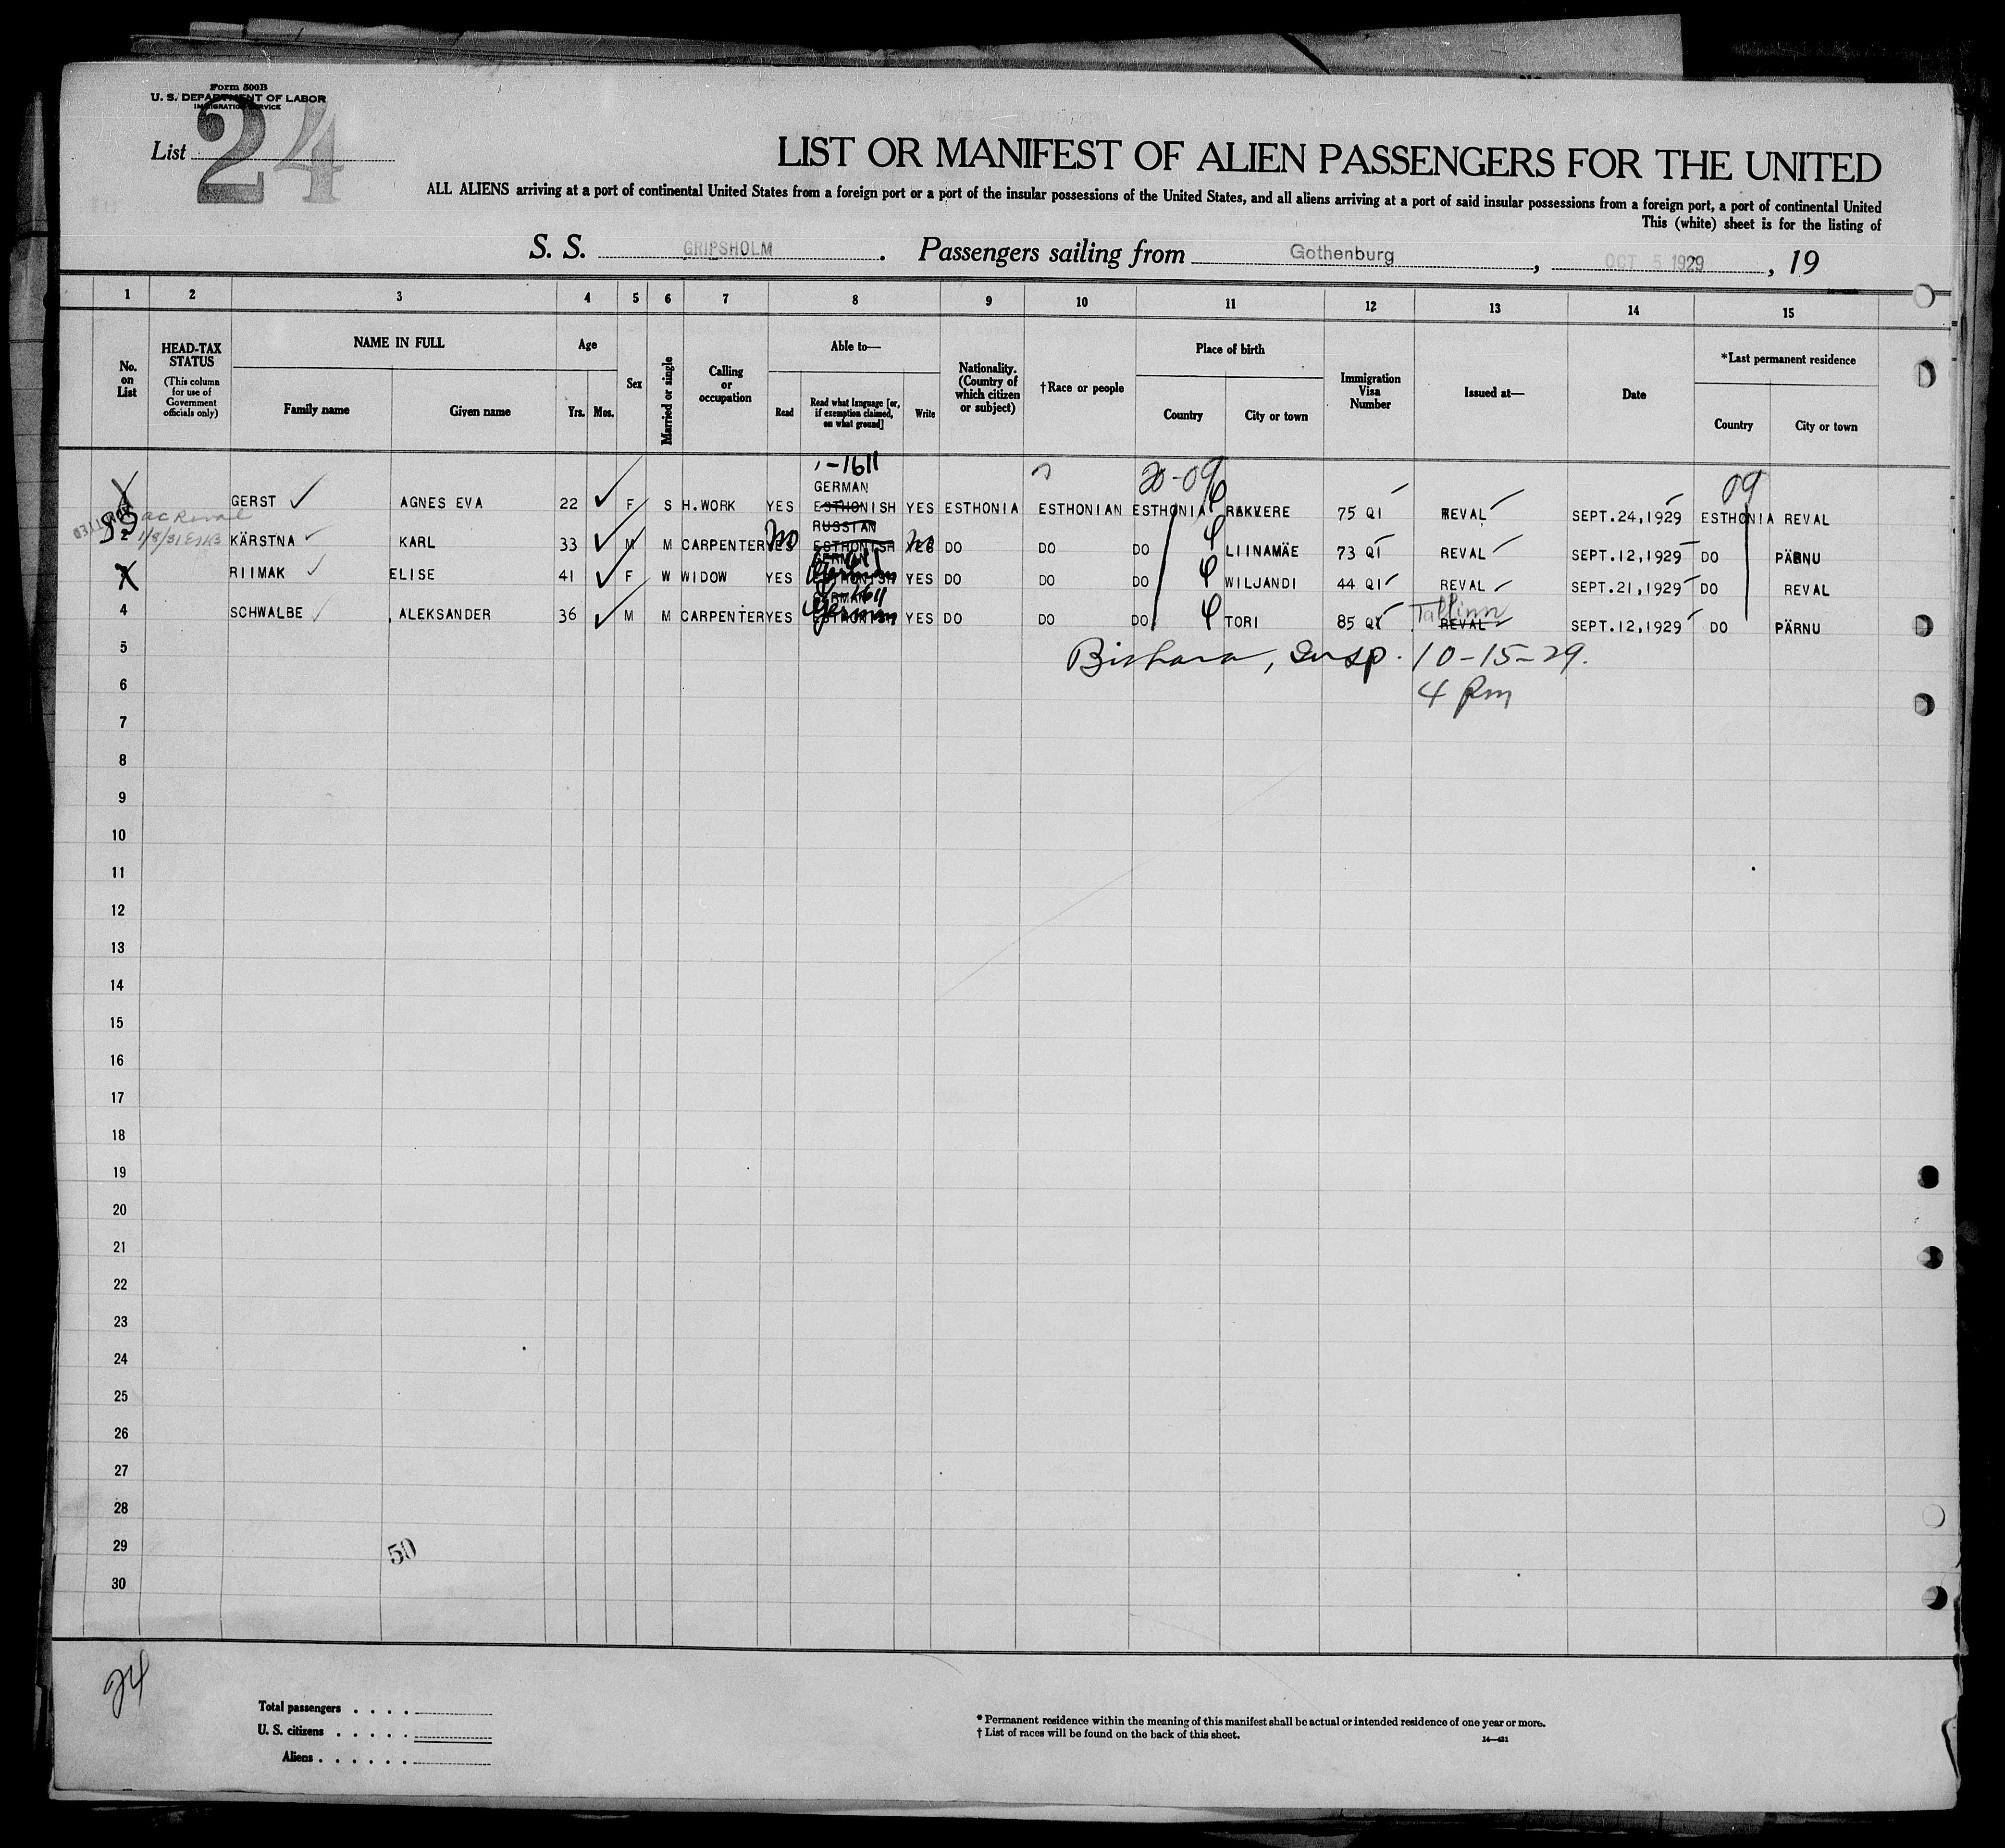 Form 500B
U. S. DEPARTMENT OF LABOR
IMMIGRATION SERVICE
List 24
LIST OR MANIFEST OF ALIEN PASSENGERS FOR THE UNITED
ALL ALIENS arriving at a port of continental United States from a foreign port or a port of the insular possessions of the United States, and all aliens arriving at a port of said insular possessions from a foreign port, a port of continental United
This (white) sheet is for the listing of
S. S. GRIPSHOLM. Passengers sailing from Gothenburg, OCT 5 1929, 19
1 2 3 4 5 6 7 8 9 10 11 12 13 14 15
No. on List
HEAD-TAX STATUS (This column for use of Government officials only)
NAME IN FULL
Family name Given name
Age
Yrs. Mos.
Sex
Married or single
Calling or occupation
Able to—
Read Read what language [or, if exemption claimed, on what ground] Write
Nationality. (Country of which citizen or subject)
†Race or people
Place of birth
Country City or town
Immigration Visa Number
Issued at—
Date
*Last permanent residence
Country City or town
-1611 20-09 09
GERMAN
GERST AGNES EVA 22 F S H.WORK YES ESTHONISH YES ESTHONIA ESTHONIAN ESTHONIA RAKVERE 75 QI REVAL SEPT.24,1929 ESTHONIA REVAL
RUSSIAN
2 KÄRSTNA KARL 33 M M CARPENTER YES No ESTHONISH YES No DO DO DO LIINAMÄE 73 QI REVAL SEPT.12,1929 DO PÄRNU
GERMAN
RIIMAK ELISE 41 F W WIDOW YES German ESTHONISH YES DO DO DO WILJANDI 44 QI REVAL SEPT.21,1929 DO REVAL
GERMAN 1611 Tallinn
4 SCHWALBE ALEKSANDER 36 M M CARPENTER YES German ESTHONISH YES DO DO DO TORI 85 QI REVAL SEPT.12,1929 DO PÄRNU
5 Insp. 10-15-29.
6 4 Pm
7
8
9
10
11
12
13
14
15
16
17
18
19
20
21
22
23
24
25
26
27
28
29 50
30
24
Total passengers . . . .
U. S. citizens . . . . .
Aliens . . . . . .
* Permanent residence within the meaning of this manifest shall be actual or intended residence of one year or more.
† List of races will be found on the back of this sheet.